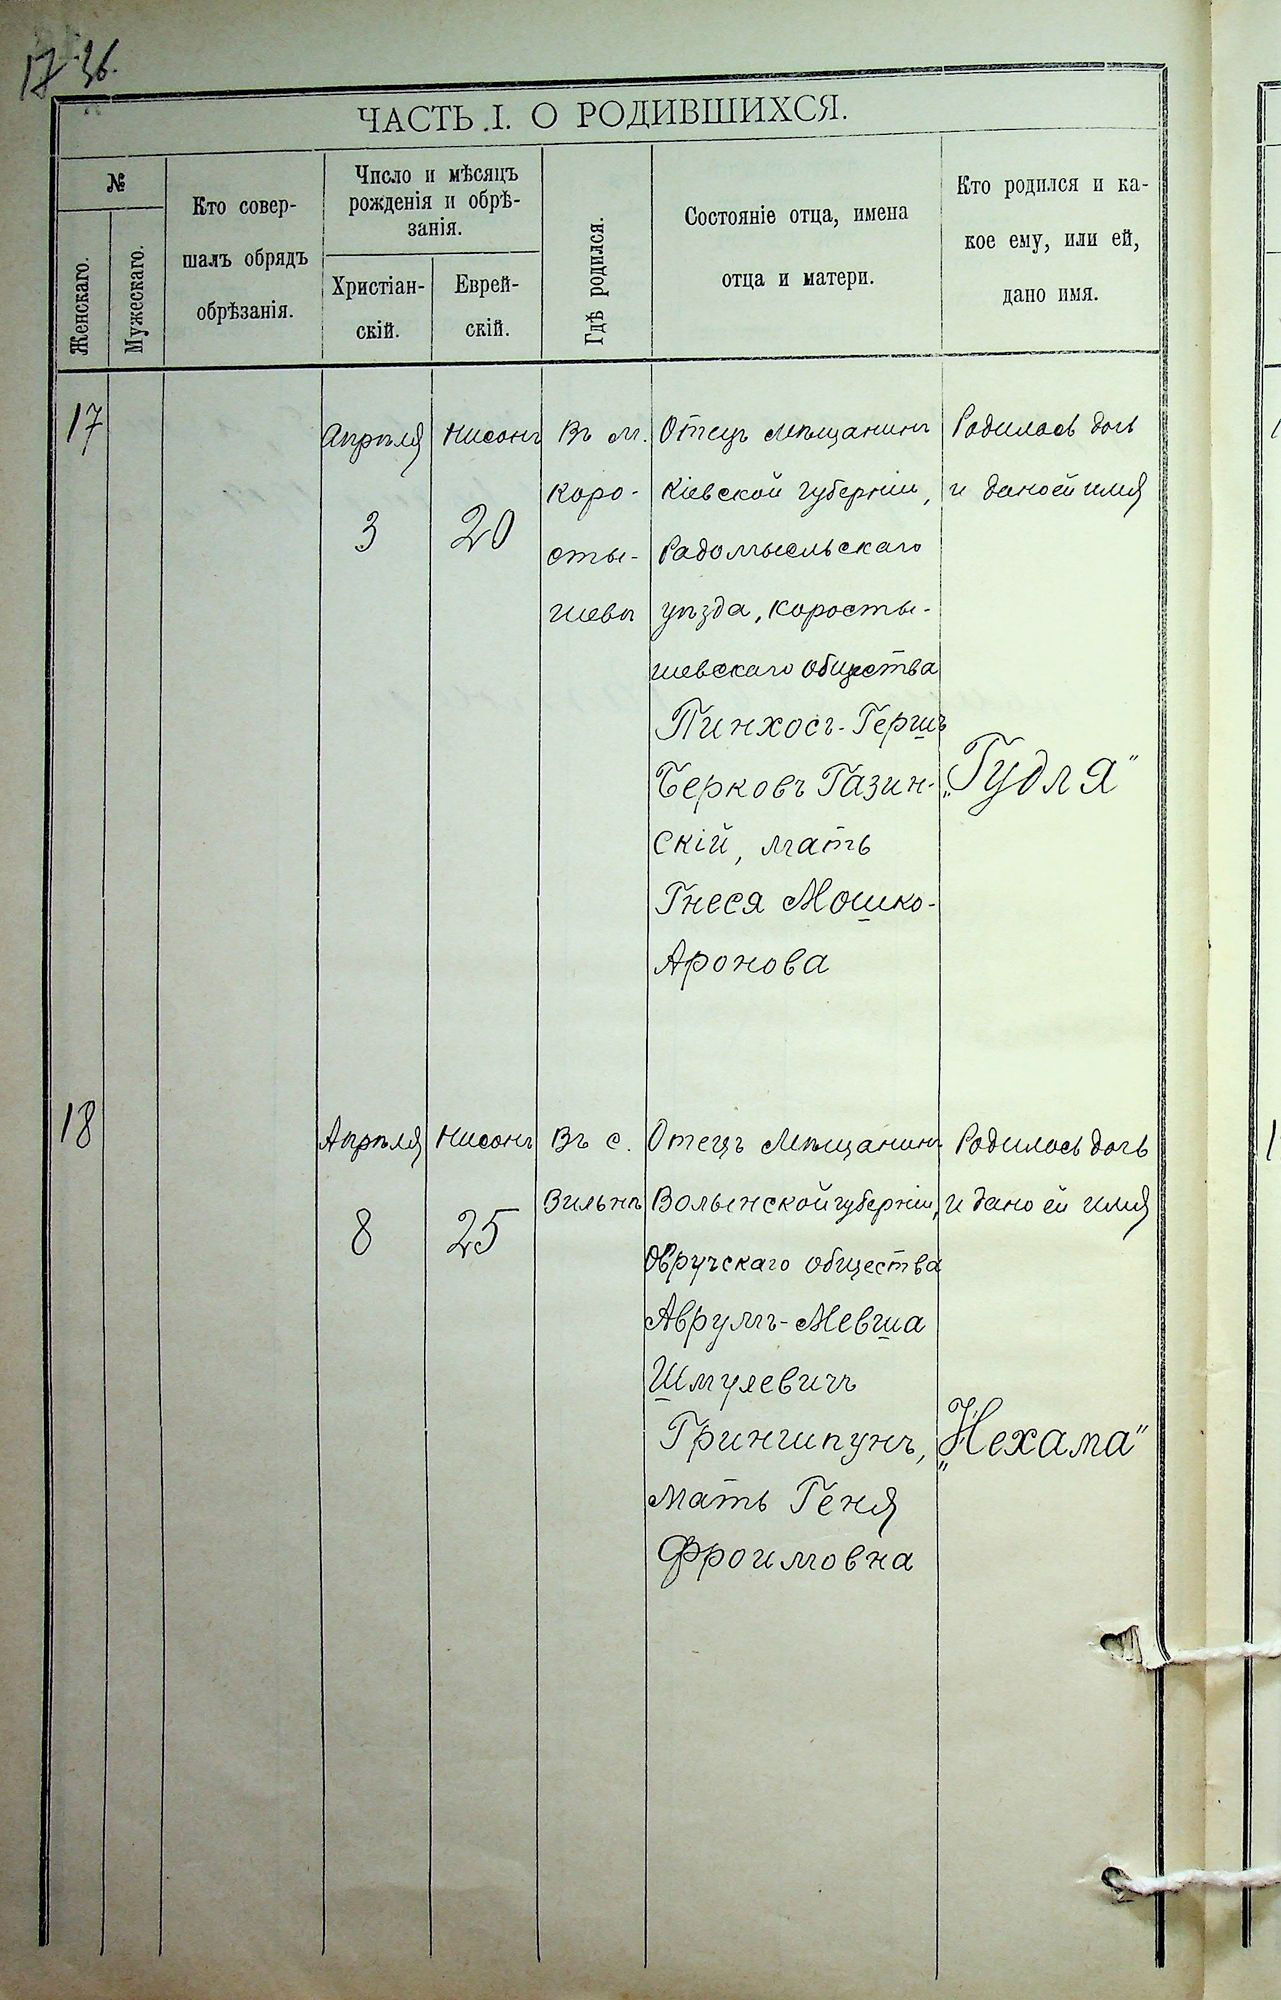 17 36.
ЧАСТЬ I. О РОДИВШИХСЯ.
№
Женскаго.
Мужескаго.
Кто совер-
шалъ обрядъ
обрѣзанія.
Число и мѣсяцъ
рожденія и обрѣ-
занія.
Христіан-
скій.
Еврей-
скій.
Гдѣ родился.
Состояніе отца, имена
отца и матери.
Кто родился и ка-
кое ему, или ей,
дано имя.
17
Апрѣля
3
Нисонъ
20
Въ м.
Коро-
сты-
шевѣ
Отецъ мѣщанинъ
Кіевской губерніи,
Радомысльскаго
уѣзда, Коросты-
шевскаго общества
Пинхосъ-Гершъ
Берковъ Газин-
скій, мать
Гнеся Мошко-
Аронова
Родилась дочь
и дано ей имя
„Гудля"
18
Апрѣля
8
Нисонъ
25
Въ с.
Вильнѣ
Отецъ мѣщанинъ
Волынской губерніи,
Овручскаго общества
Аврумъ-Мевша
Шмулевичъ
Гриншпунъ,
мать Геня
Фроимовна
Родилась дочь
и дано ей имя
„Нехама"